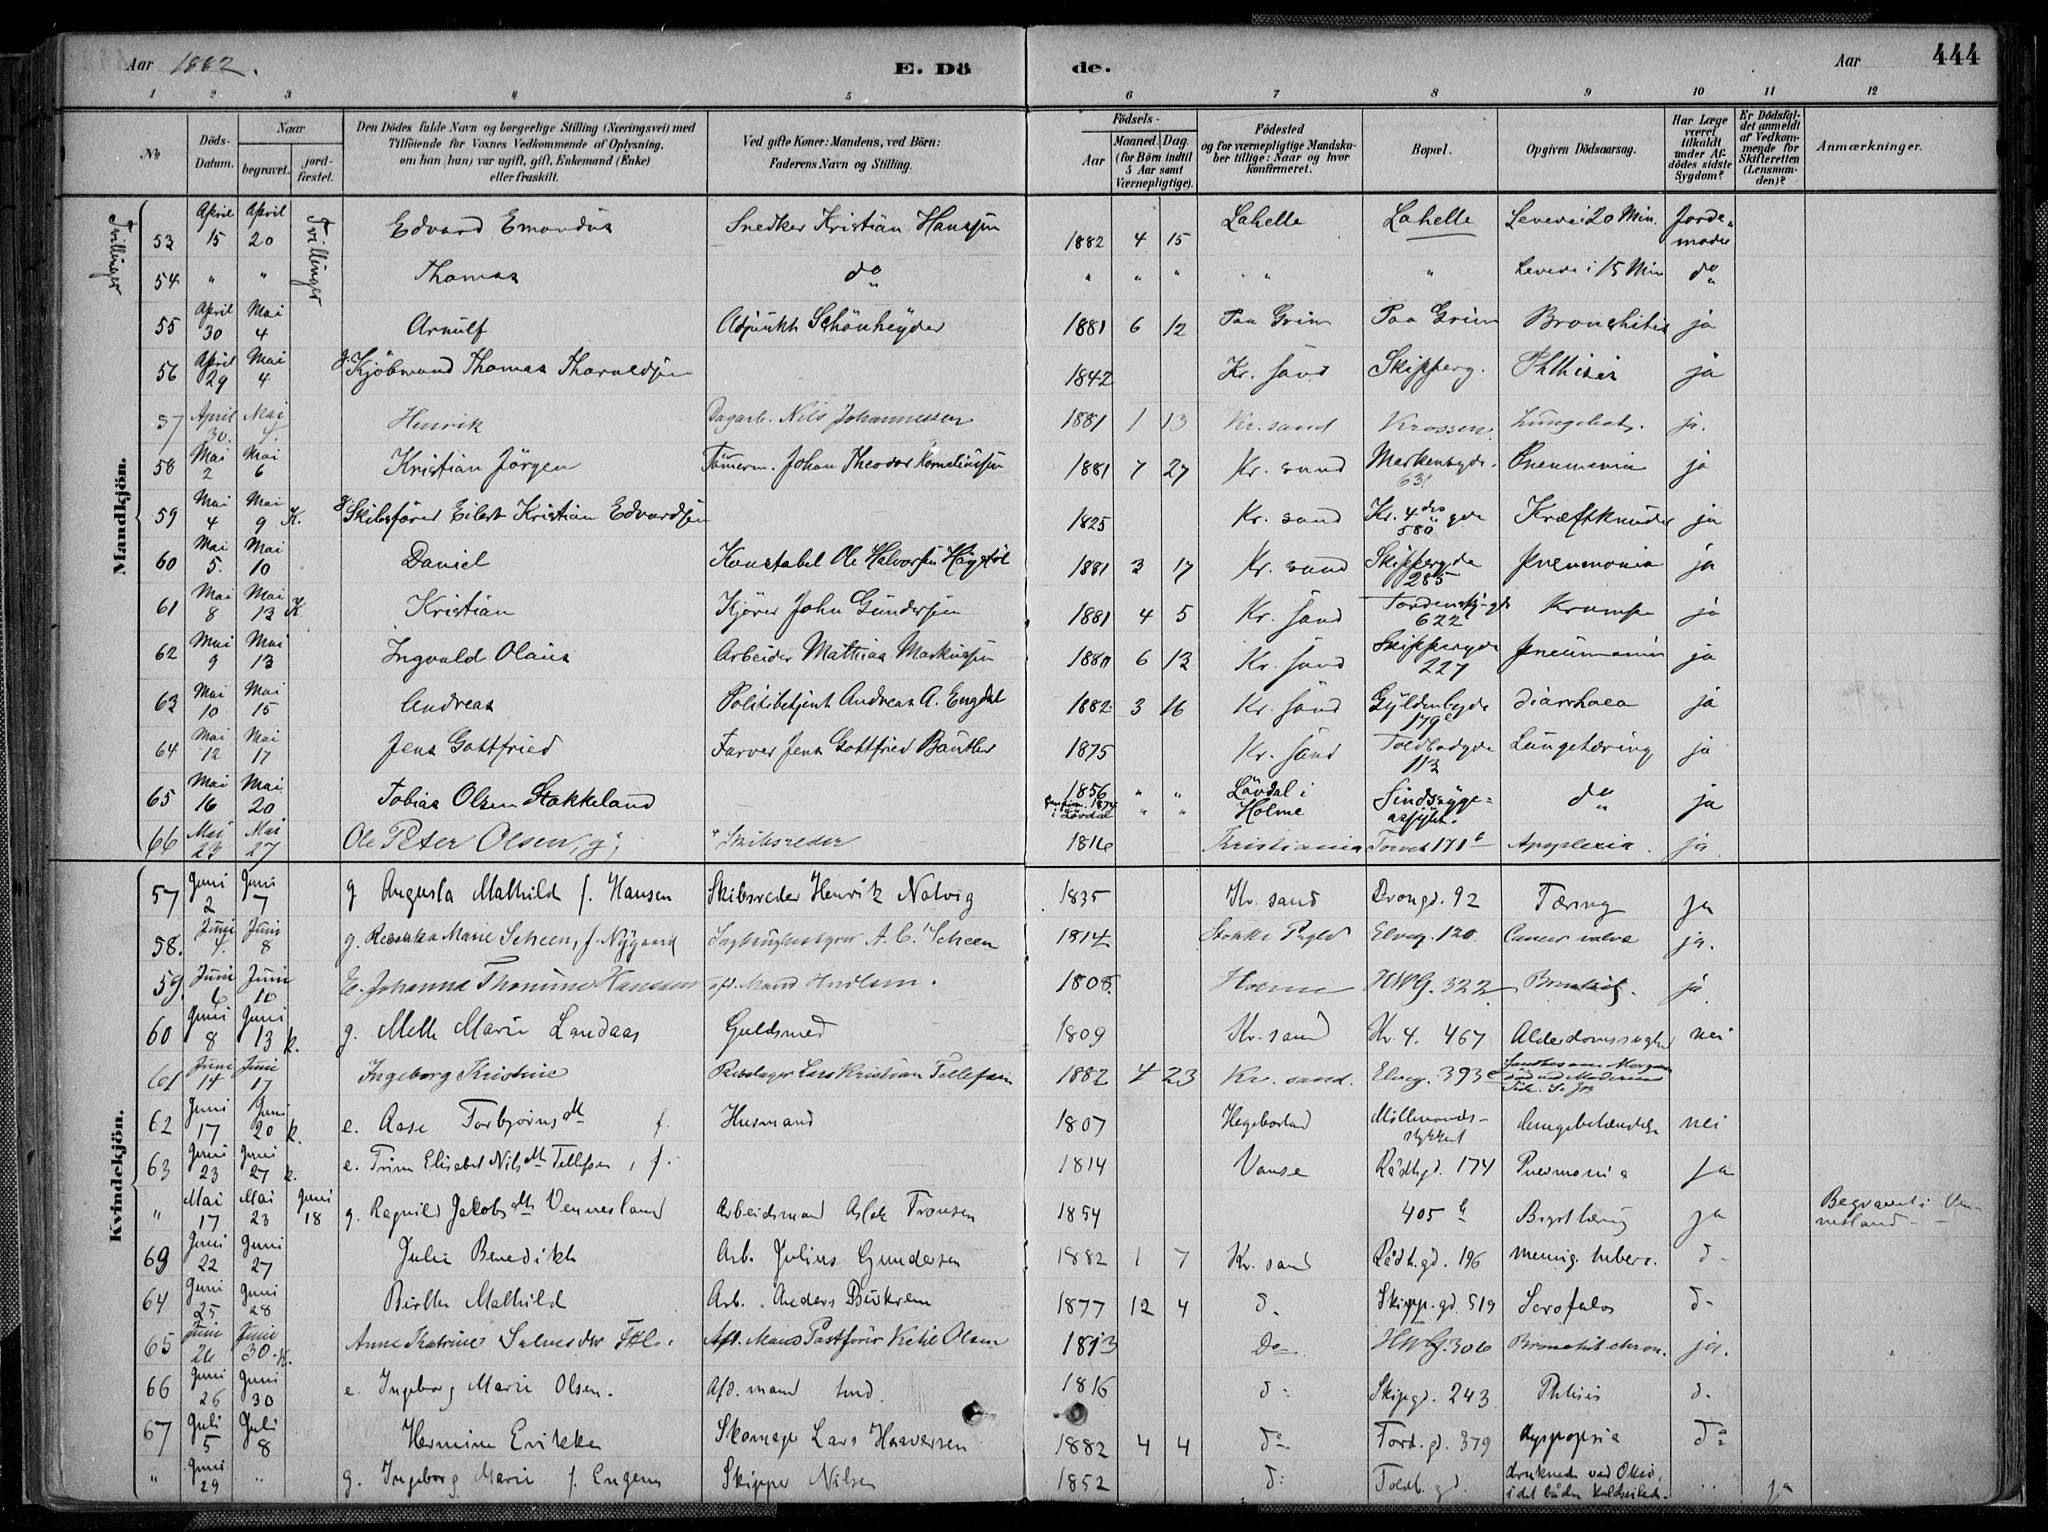 Aar 1882. E. Dö de. Aar 444
1 2 3 4 5 6 7 8 9 10 11 12
No. Döds-Datum. Naar begravet. jordfæstet. Den Dödes fulde Navn og borgerlige Stilling (Næringsvei) med Tilföiende for Voxnes Vedkommende af Oplysning, om han (hun) var ugift, gift, Enkemand (Enke) eller fraskilt. Ved gifte Koner: Mandens, ved Börn: Faderens Navn og Stilling. Födsels- Aar Maaned. Dag. (for Börn indtil 5 Aar samt Værnepligtige). Födested og for værnepligtige Mandskaber tillige: Naar og hvor konfirmeret. Bopæl. Opgiven Dödsaarsag. Har Læge været tilkaldt under Afdödes sidste Sygdom? Er Dödsfaldet anmeldt af Vedkommende for Skifteretten (Lensmanden)? Anmærkninger.
Mandkjön.
Tvillinger
53 April 15 April 20 Tvillinger Edvard Emandus Snedker Kristian Hanssen 1882 4 15 Lahelle Lahelle Levede i 20 Min. Jordemoder
54 " " Thomas do " " " " " Levede i 15 Min do
55 April 30 Mai 4 Arnulf Adjunkt Schönheyder 1881 6 12 Paa Grim Paa Grim Bronchitis ja
56 April 29 Mai 4 g. Kjöbmand Thomas Tharaldsen 1842 Kr. sand Skipperg. Phthisis ja
57 April 30. Mai 4. Henrik Dagarb. Nils Johannessen 1881 1 13 Kr. sand Krossen. Lungebet. ja.
58 Mai 2 Mai 6 Kristian Jörgen Tömerm. Johan Theodor Korneliussen 1881 7 27 Kr. sand Markensgde. 631 Pneumonia ja
59 Mai 4 Mai 9 K. g. Skibsförer Eilert Kristian Edvardsen 1825 Kr. sand Kr. 4 des gde 580 Kræftknuder ja
60 Mai 5. Mai 10 Daniel Konstabel Ole Halvorsen Högstöl 1881 3 17 Kr. sand Skippergde 285 Pneumonia ja
61 Mai 8 Mai 13 K Kristian Kjörer John Gundersen 1881 4 5 Kr. sand Tordenskj.gde 622 Krampe ja
62 Mai 9 Mai 13 Ingvald Olaus Arbeider Mathias Markussen 1880 6 13 Kr. sand Skippergde 227 Pneumonia ja
63 Mai 10 Mai 15 Andreas Politibetjent Andreas A. Engdal 1882 3 16 Kr. sand Gyldenlgde 179e diarrhoea ja
64 Mai 12 Mai 17 Jens Gottfried Farver Jens Gottfried Bautler 1875 Kr. sand Toldbodgde 113 Lungetæring ja
65 Mai 16 Mai 20 Tobias Olsen Stokkeland 1856 konfirm. 1874 i Lövdal " " Lövdal i Holme Sindssygeasylet. do ja
66 Mai 23 Mai 27 Ole Peter Olsen, g; Skibsreder 1816 Kristiania Torvet 171 b Apoplexia. ja
Kvindekjön.
57 Juni 2 Juni 7 g Augusta Mathild f. Hansen Skibsreder Henrik Natvig 1835 Kr. sand Drongd. 92 Tæring ja
58. Juni 4. Juni 8 g. Rebekka Marie Scheen, f. Nygaard A. C. Scheen 1814 Stokke Elveg. 120. Cancer ja.
59 Juni 6 Juni 10 E. Johanna Thomine Hanssen afd. Mand 1808. HWG. 322 ja
60 Juni 8 Juni 13 k. g. Mette Marie Landaas Guldsmed 1809 Kr. sand Kr. 4. 467 Alderdomssvaghed nei
61 Juni 14 Juni 17 Ingeborg Kristine Rebslager Lars Kristian Tellefsen 1882 4 23 Kr. sand. Elveg. 393e
62 Juni 17 Juni 20 k. e. Aase Torbjörnsdt f. Husmand 1807 Hegebostad Möllevands-stykket Lungebetændelse nei
63 Juni 23 Juni 27 k. e. Trine Elisabet Nilsdt Tellefsen, f. 1814 Vanse Raadhgd. 174 Pneumonia ja
" Mai 17 Mai 23 Juni 18 g. Ragnild Jakobsdt Vennesland Arbeidsmand Aslak Fronsen 1854 405 b Brysttæring ja Begravet i Vennesland
69 Juni 22 Juni 27 Julie Benedikte Arb. Julius Gundersen 1882 1 7 Kr. sand Raadh.gd. 196 mening. tuberc. d-
64 Juni 25 Juni 28 Birthe Mathild Arb. Anders Birkrem 1877 12 4 d. Skipp.gd. 519 Scrofulos d-
65 Juni 26 Juni 30. K. Anne Katrine Salvesdtr Afd. Mand Postförer Ketil Olsen 1813 Do HWG. 306 Bronchit. chron. ja.
66 Juni 26 Juni 30 e. Ingeborg Marie Olsen. Afd. mand 1816 d: Skipgd. 243 Phtisis d.
67 Juli 5 Juli 8 Hermine Erikke Skomager Lars Haaversen 1882 4 4 do Tord.gd. 379 dyspepsia do
" Juni 29 " g. Ingeborg Marie f. Engens Skipper Nilsen 1852 d: Toldb.gd. druknede ved Oksö, i det baaden kuldseilede. .. ja